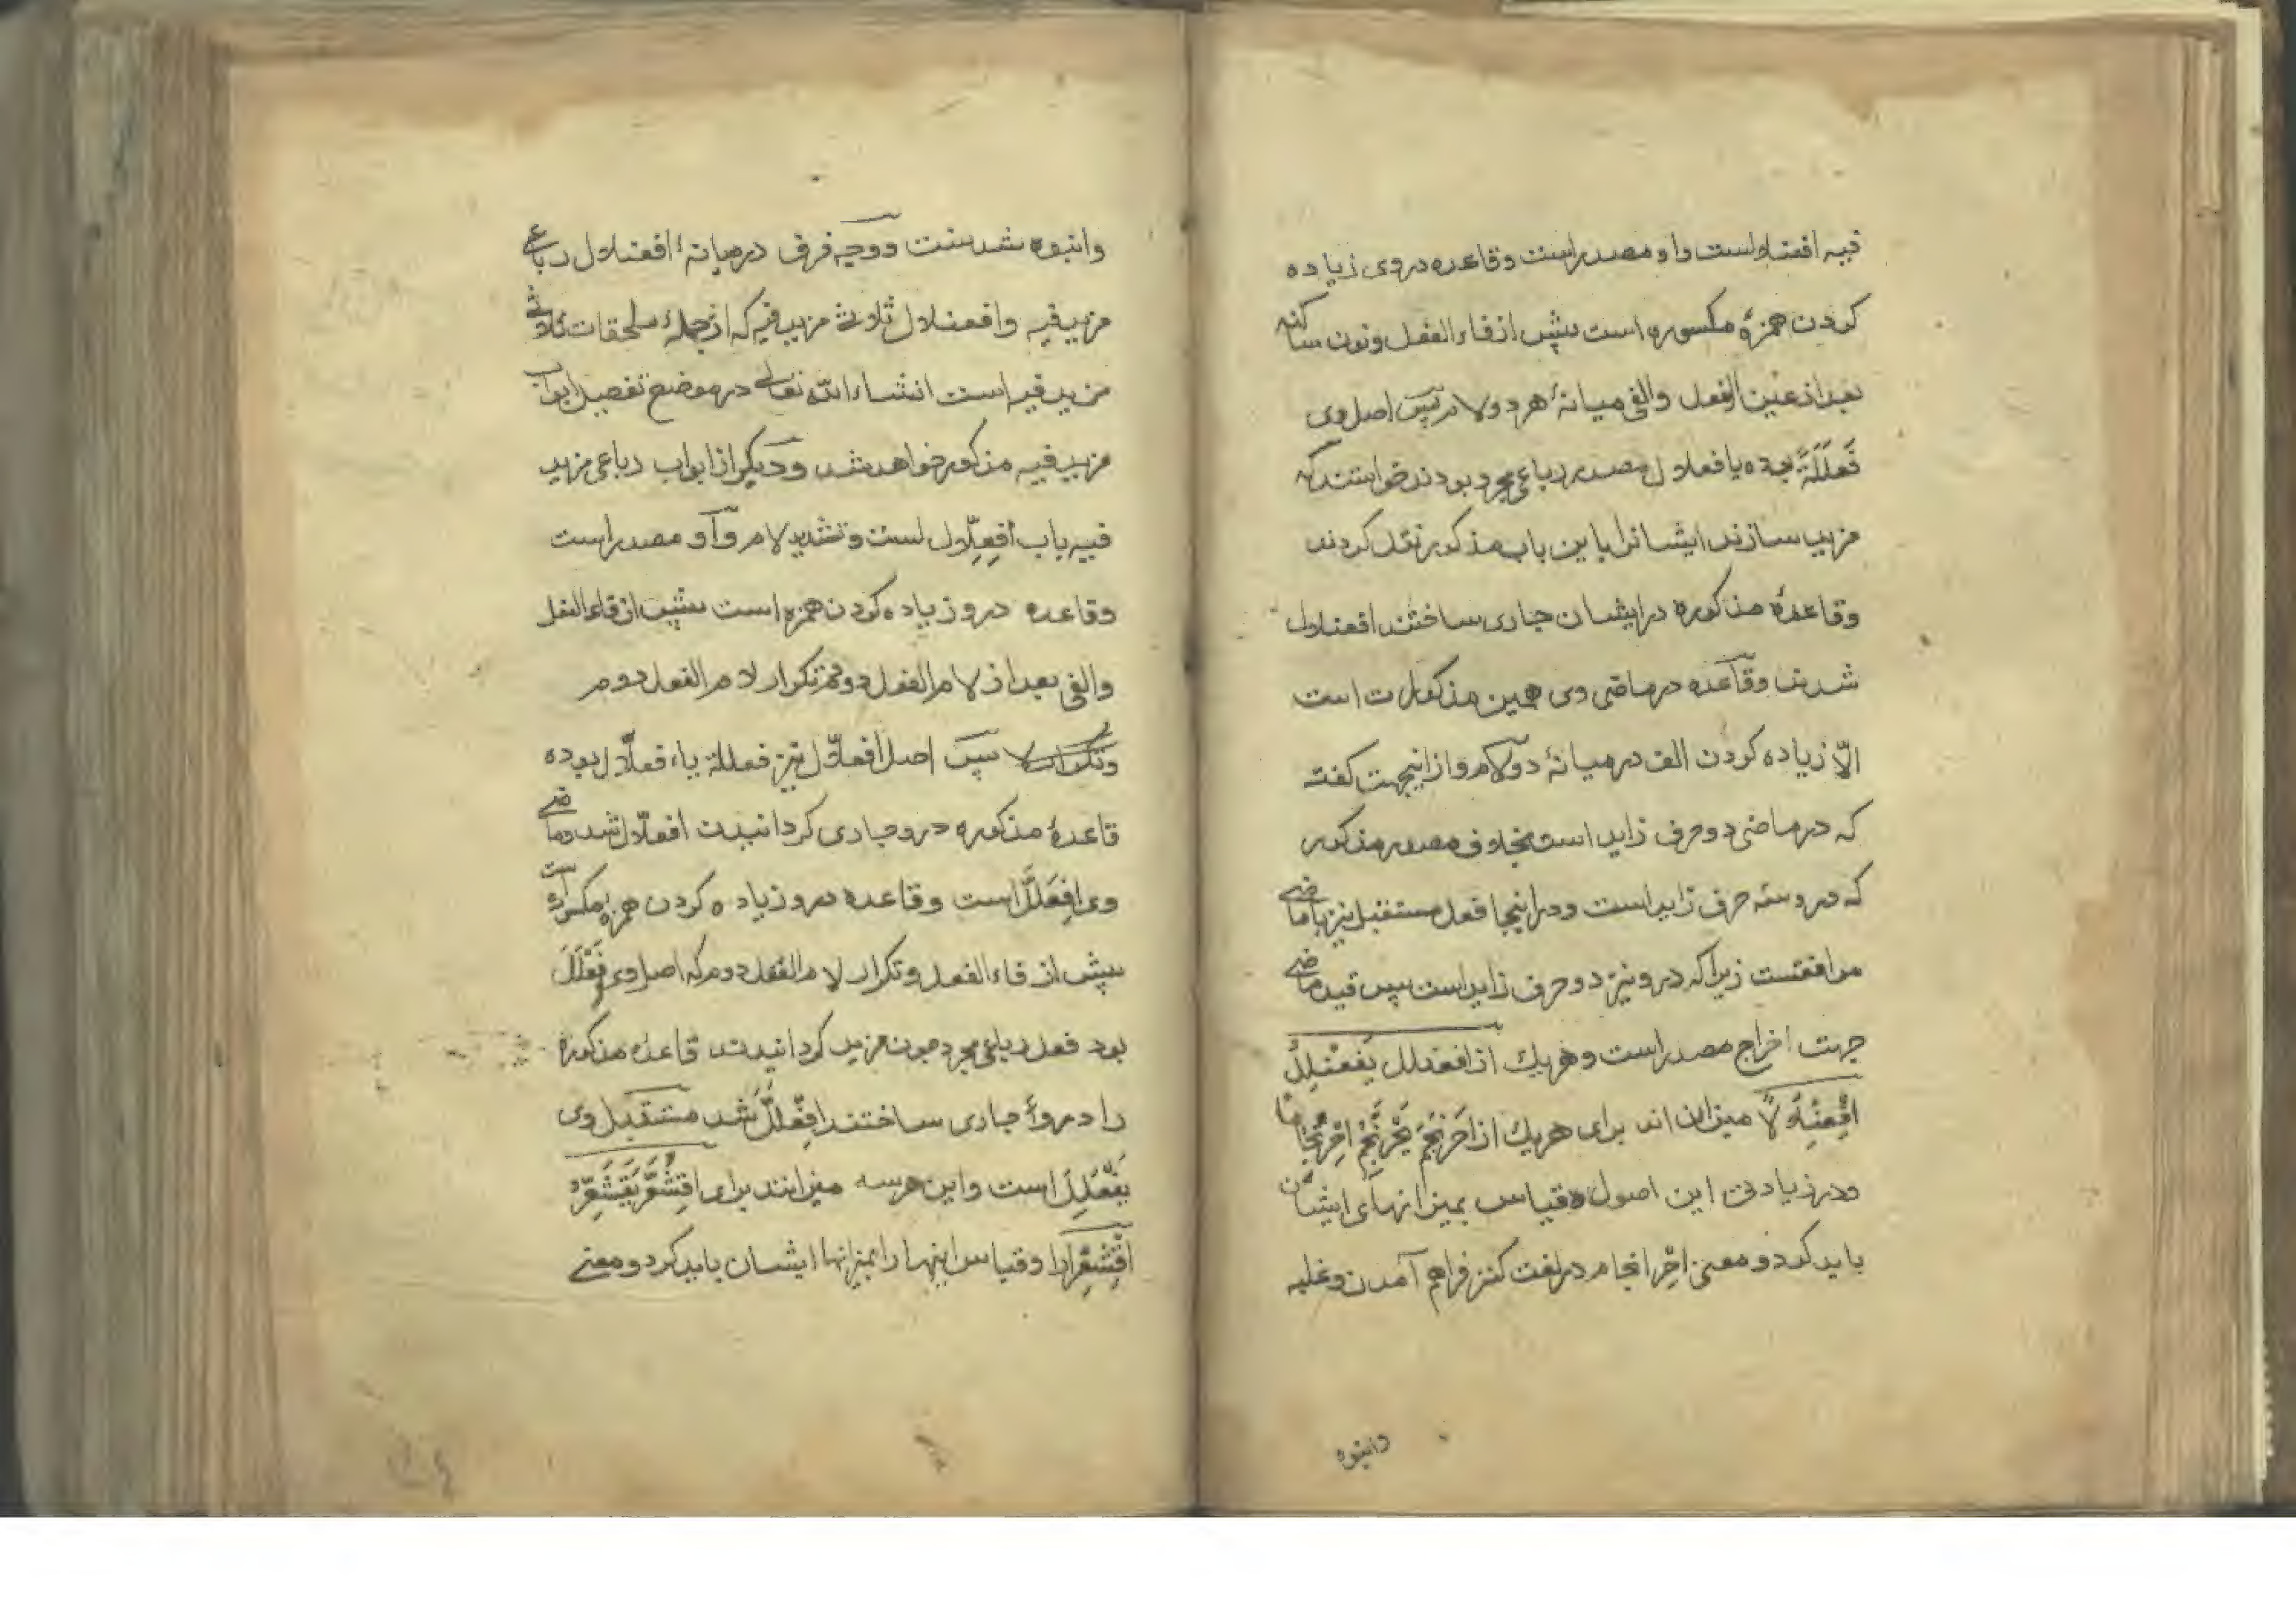 فیه افعنلالست و او مصدر است و قاعده در وی زیاده
کردن همزهٔ مکسوره است پیش از فاء الفعل و نون ساکنه
بعد از عین الفعل و الفی میانهٔ هر دو لام پس اصل وی
فَعلَلَةً بوده یا فعلال مصدر رباعی مجرد بودند خواستند که
مزید سازند ایشانرا باین باب مذکور نقل کردند
وقاعدهٔ مذکوره در ایشان جاری ساختند افعنلال
شدند و قاعده در ماضی وی همین مذکورات است
الّا زیاده کردن الف در میانهٔ دو لام و از اینجهت گفته
که در ماضی دو حرف زاید است بخلاف مصدر مذکور
که درو سه حرف زاید است و در اینجا فعل مستقبل نیز با ماضی
موافقست زیرا که درو نیز دو حرف زاید است پس قید ماضی
جهت اخراج مصدر است و هر یك از افعنلل یَفعَنلِلُ
اِفْعِنْلَالًا میزان اند برای هر یك از اِحرَنجَمَ یَحْرَنْجِمُ اِحْرِنْجَامًا
و در زیادتی این اصول قیاس بمیزانهای ایشان
باید کرد و معنی احرنجام در لغت کنز فراهم آمدن و غلبه
وانبوه
وانبوه شدنست و وجه فرق در میانهٔ افعنلال رباعی
مزید فیه و افعنلال ثلاثی مزید فیه که از جملهٔ ملحقات ثلاثی
مزید فیه است انشاء الله تعالی در موضع تفصیل ابواب
مزید فیه مذکور خواهد شد و دیگر از ابواب رباعی مزید
فیه باب اِفعِلّال است و تشدید لام و او مصدر است
وقاعده درو زیاده کردن همزه است پیش از فاء الفعل
والفی بعد از لام الفعل دوم تکرار لام الفعل دوم
پس اصل افعلّال نیز فعللة یا فعلال بوده
قاعدهٔ مذکوره درو جاری کردانیدند افعلّال شد و ماضی
وی اِفعَلَلَّ است و قاعده درو زیاده کردن همزه مکسوره است
پیش از فاء الفعل و تکرار لام الفعل دوم که اصل وی فَعْلَلَ
بود فعل رباعی مجرد چون مزید کردانیدند قاعده مذکوره
را درو جاری ساختند اِفعَلَلَّ شد مستقبل وی
یَفْعَلِلُّ است و این هر سه میزانند برای اِقشَعَرَّ یَقشَعِرُّ
اِقْشِعْرَارًا و قیاس اینها را بمیزانها ایشان باید کرد و معنی